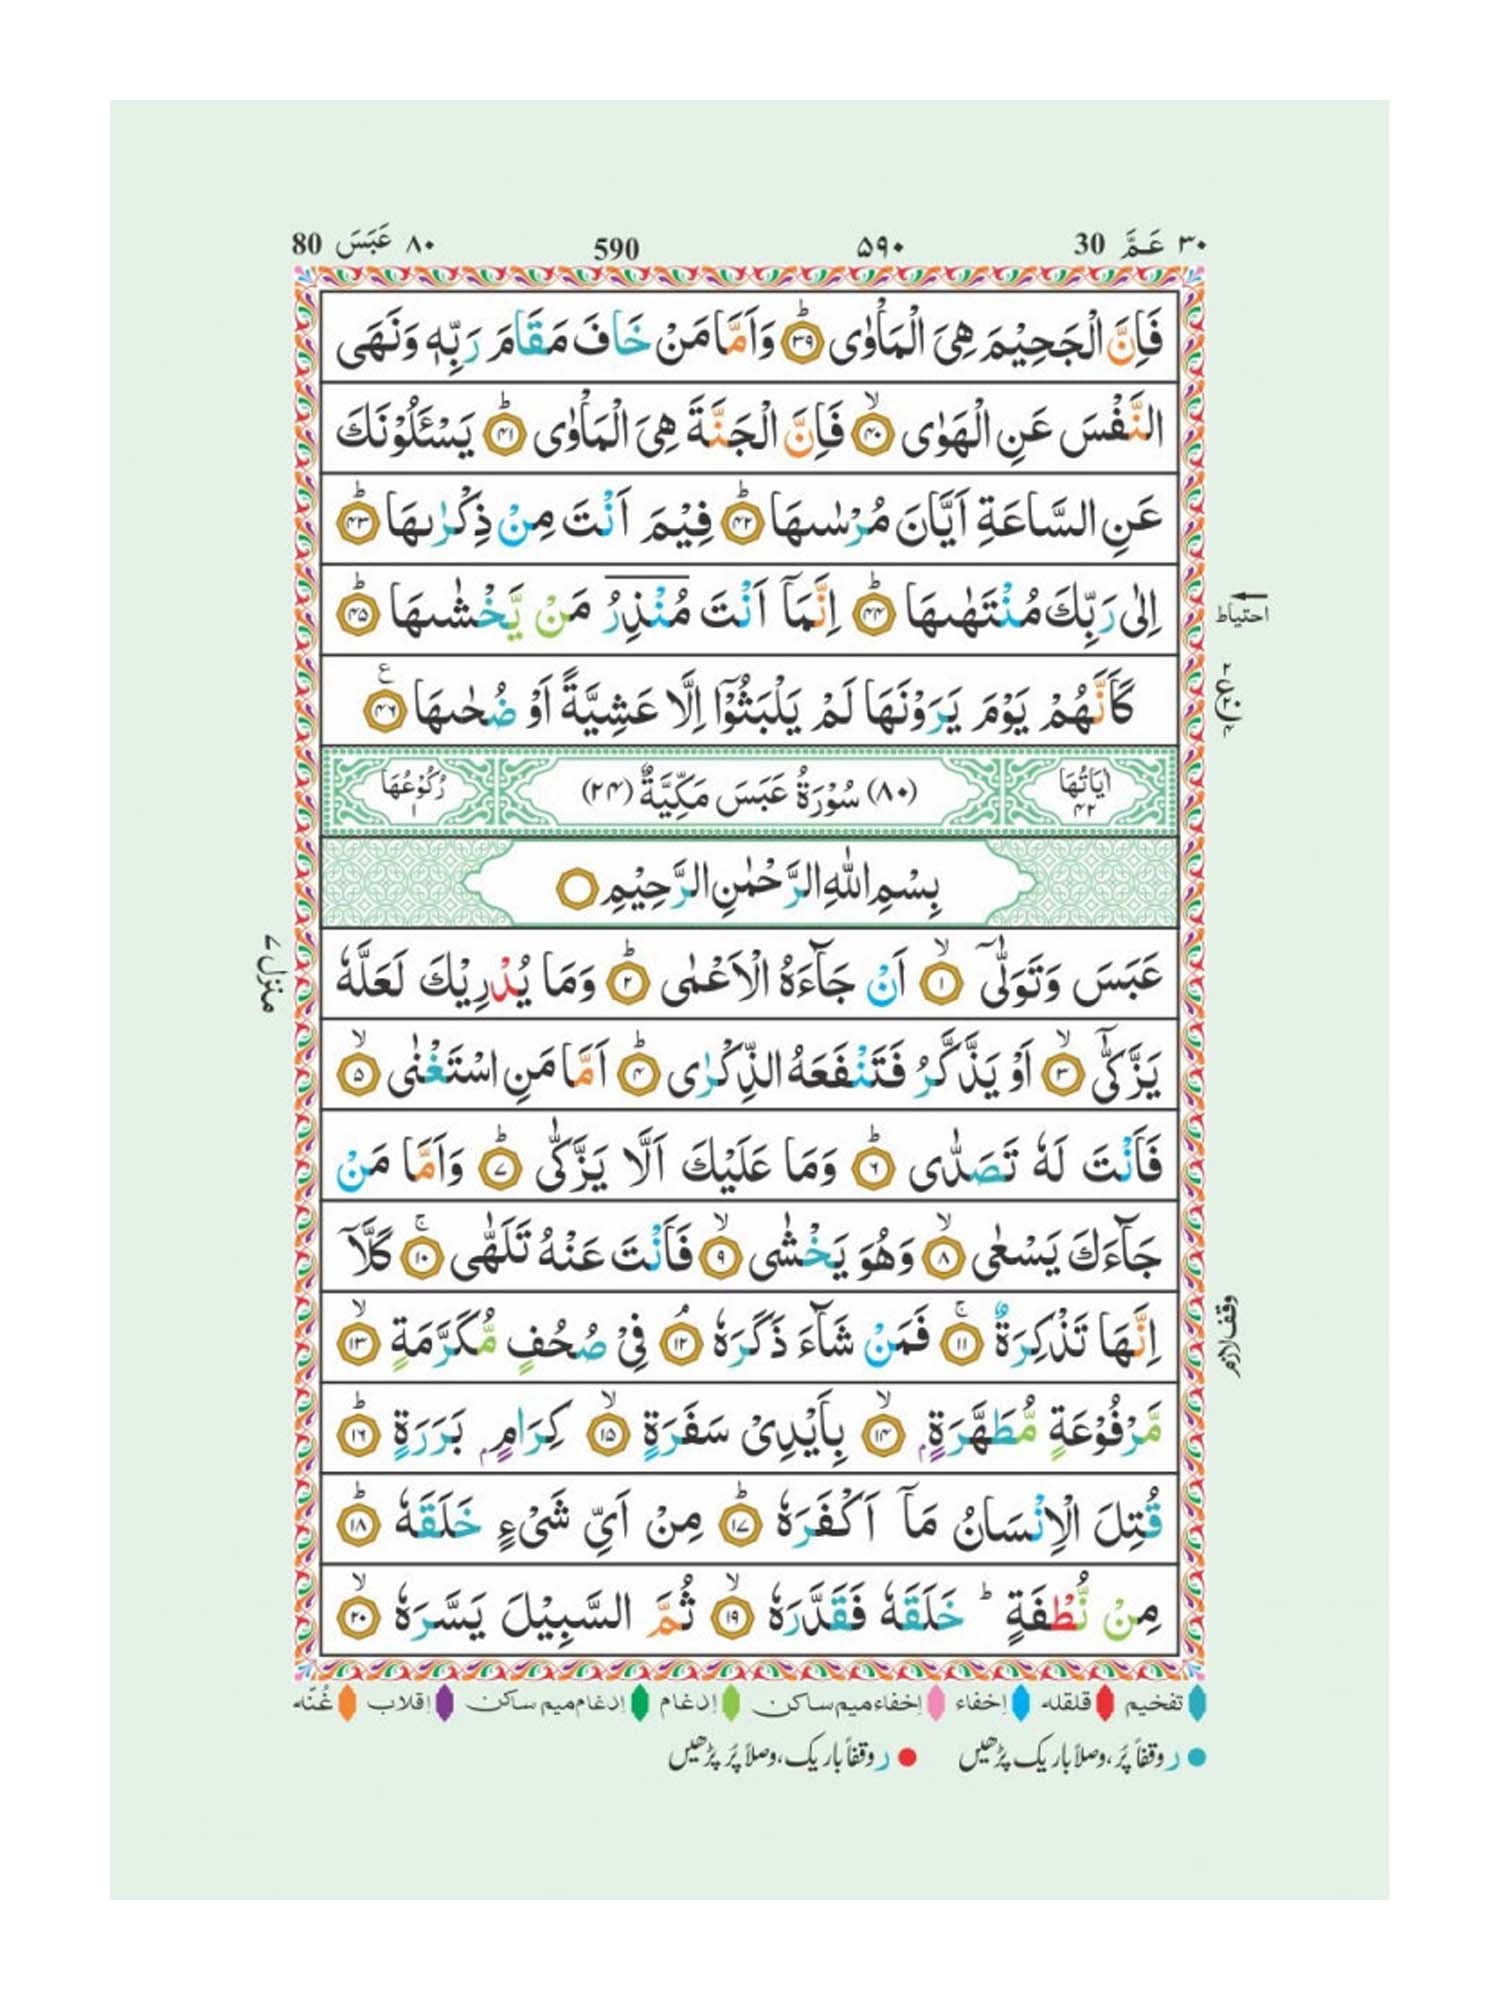 ٣٠ عَمَّ 30 ۵۹۰ 590 ٨٠ عَبَسَ 80
فَاِنَّ الْجَحِيْمَ هِىَ الْمَاْوٰى ؕ‏﴿۳۹﴾ وَاَمَّا مَنْ خَافَ مَقَامَ رَبِّهٖ وَنَهَى
النَّفْسَ عَنِ الْهَوٰى ۙ‏﴿۴۰﴾ فَاِنَّ الْجَنَّةَ هِىَ الْمَاْوٰى ؕ‏﴿۴۱﴾ يَسْـَٔلُوْنَكَ
عَنِ السَّاعَةِ اَيَّانَ مُرْسٰٮهَا ؕ‏﴿۴۲﴾ فِيْمَ اَنْتَ مِنْ ذِكْرٰٮهَا ؕ‏﴿۴۳﴾
اِلٰى رَبِّكَ مُنْتَهٰٮهَا ؕ‏﴿۴۴﴾ اِنَّمَاۤ اَنْتَ مُنْذِرُ مَنْ يَّخْشٰٮهَا ؕ‏﴿۴۵﴾
احتیاط
كَاَنَّهُمْ يَوْمَ يَرَوْنَهَا لَمْ يَلْبَثُوْۤا اِلَّا عَشِيَّةً اَوْ ضُحٰٮهَا ﴿۴۶﴾
٢ ع ٢٠ ٤
اٰيَاتُهَا ۴۲ (۸۰) سُوْرَةُ عَبَسَ مَكِّيَّةٌ (۲۴) رُكُوْعُهَا ۱
بِسْمِ اللّٰهِ الرَّحْمٰنِ الرَّحِيْمِ
عَبَسَ وَتَوَلّٰٓى ۙ‏﴿۱﴾ اَنْ جَآءَهُ الْاَعْمٰى ؕ‏﴿۲﴾ وَمَا يُدْرِيْكَ لَعَلَّهٗ
منزل ٧
يَزَّكّٰٓى ۙ‏﴿۳﴾ اَوْ يَذَّكَّرُ فَتَنْفَعَهُ الذِّكْرٰى ؕ‏﴿۴﴾ اَمَّا مَنِ اسْتَغْنٰى ۙ‏﴿۵﴾
فَاَنْتَ لَهٗ تَصَدّٰى ؕ‏﴿۶﴾ وَمَا عَلَيْكَ اَلَّا يَزَّكّٰى ؕ‏﴿۷﴾ وَاَمَّا مَنْ
جَآءَكَ يَسْعٰى ۙ‏﴿۸﴾ وَهُوَ يَخْشٰى ۙ‏﴿۹﴾ فَاَنْتَ عَنْهُ تَلَهّٰى ۚ‏﴿۱۰﴾ كَلَّاۤ
اِنَّهَا تَذْكِرَةٌ ۚ‏﴿۱۱﴾ فَمَنْ شَآءَ ذَكَرَهٗ ۘ‏﴿۱۲﴾ فِىْ صُحُفٍ مُّكَرَّمَةٍ ۙ‏﴿۱۳﴾
وقف لازم
مَّرْفُوْعَةٍ مُّطَهَّرَةٍۭ ۙ‏﴿۱۴﴾ بِاَيْدِىْ سَفَرَةٍ ۙ‏﴿۱۵﴾ كِرَامٍۭ بَرَرَةٍ ؕ‏﴿۱۶﴾
قُتِلَ الْاِنْسَانُ مَاۤ اَكْفَرَهٗ ؕ‏﴿۱۷﴾ مِنْ اَىِّ شَىْءٍ خَلَقَهٗ ؕ‏﴿۱۸﴾
مِنْ نُّطْفَةٍ ؕ خَلَقَهٗ فَقَدَّرَهٗ ۙ‏﴿۱۹﴾ ثُمَّ السَّبِيْلَ يَسَّرَهٗ ۙ‏﴿۲۰﴾
تفخیم قلقلہ اِخفاء اِخفاء میم ساکن اِدغام اِدغام میم ساکن اِقلاب غُنّہ
ر وقفاً پُر، وصلاً باریک پڑھیں ر وقفاً باریک، وصلاً پُر پڑھیں